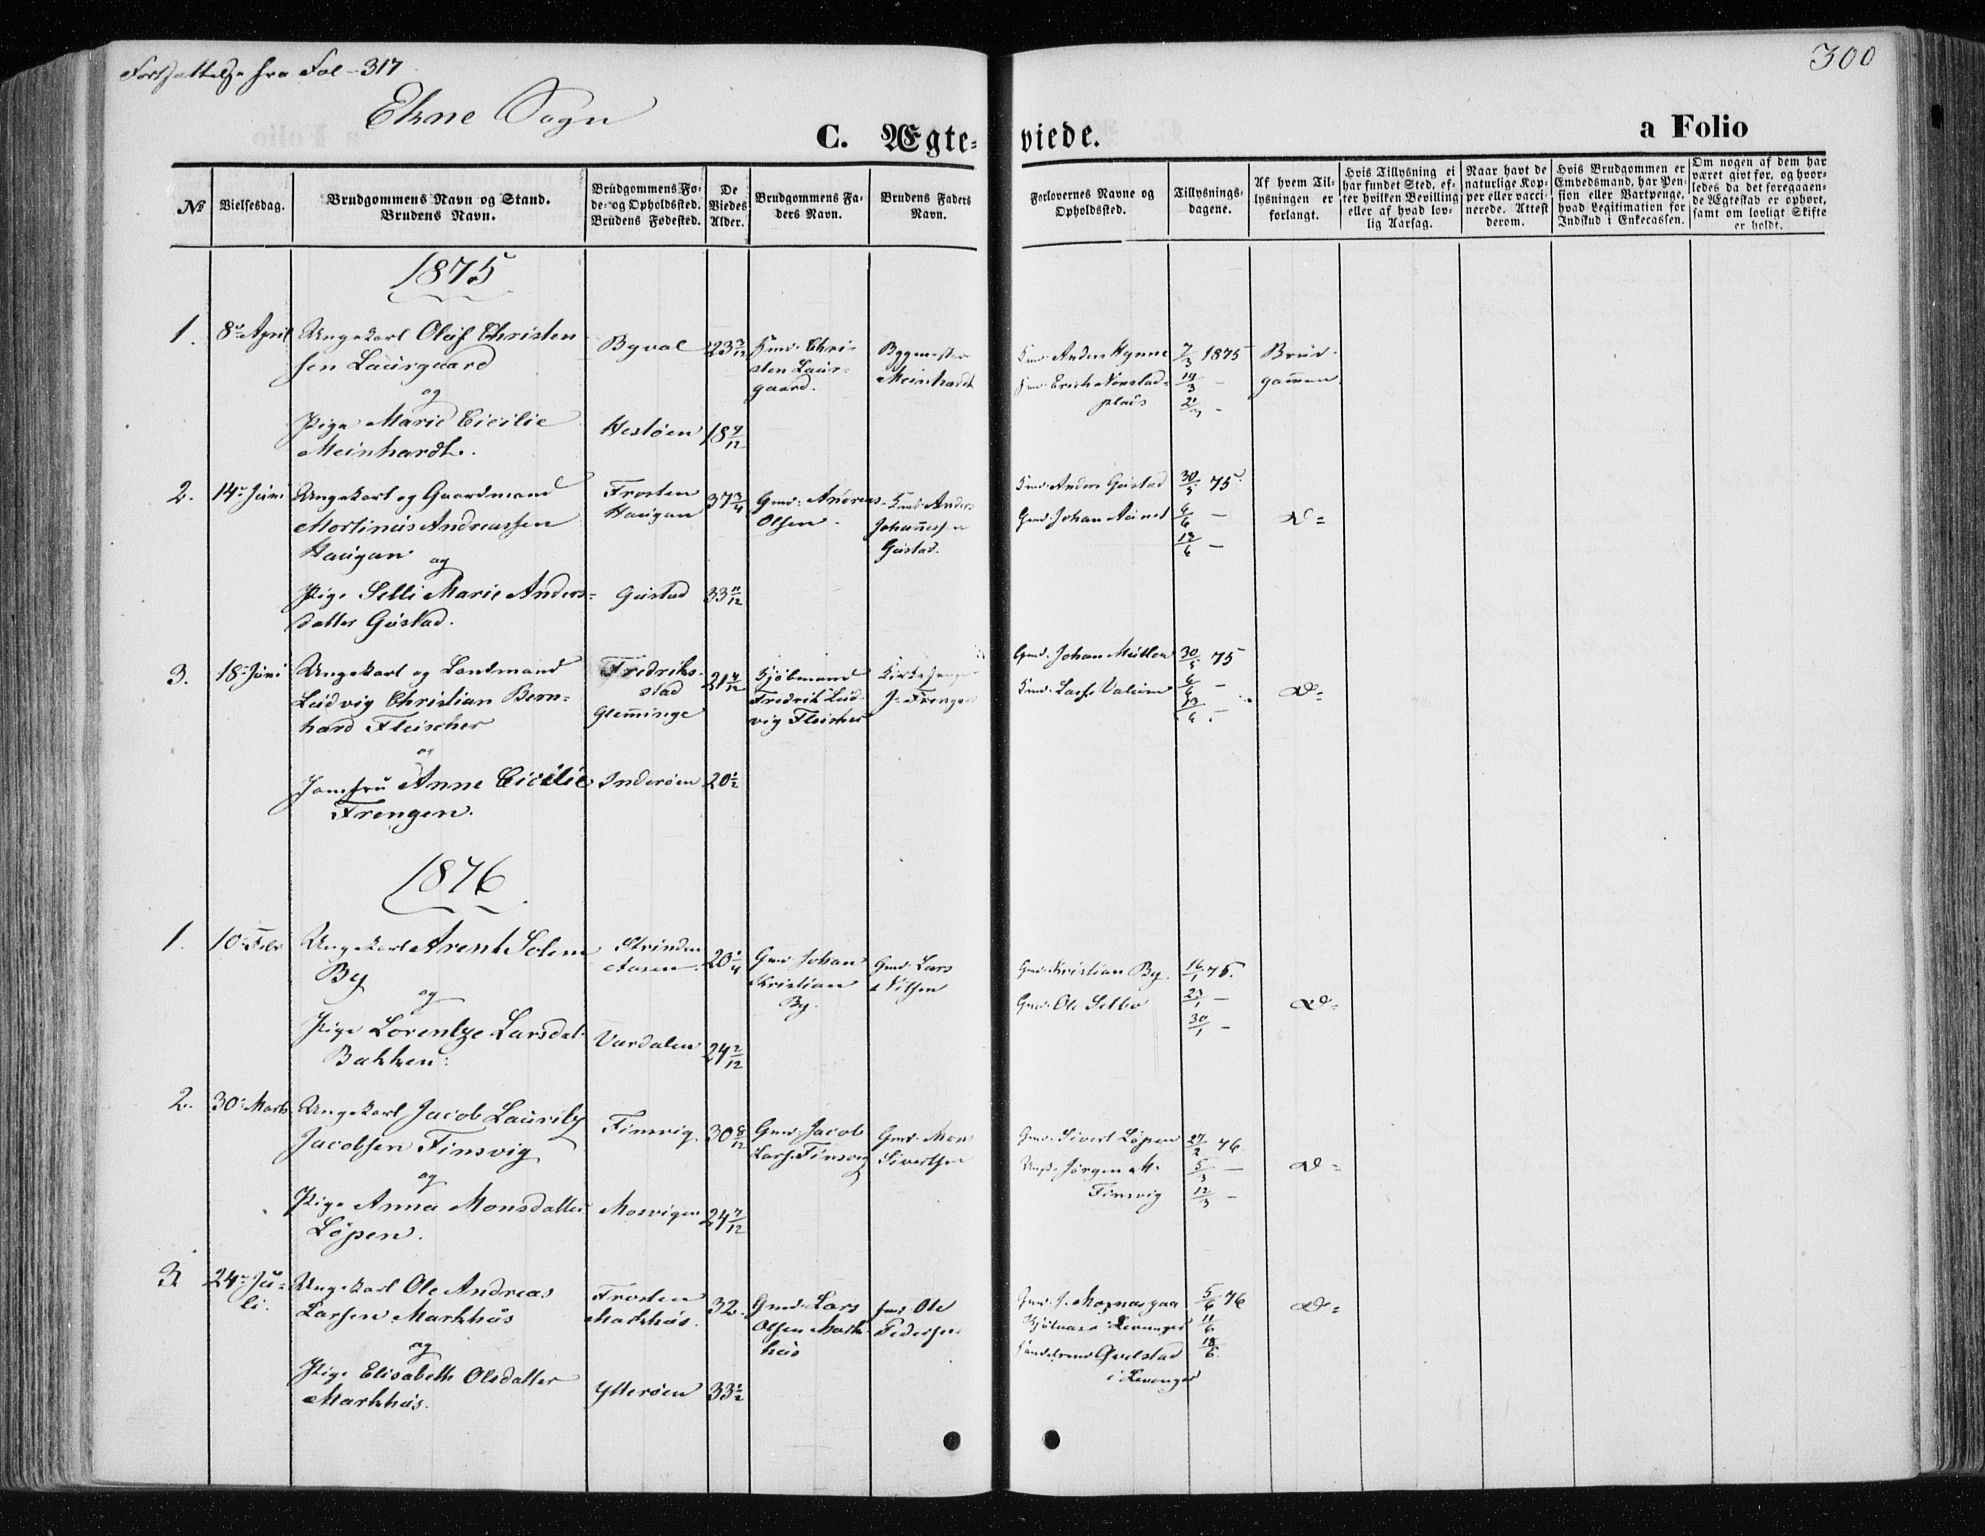 Fortsættelse fra Fol-317
300
Ekne Sogn
C. Ægteviede.
a Folio
No
Vielsesdag.
Brudgommens Navn og Stand.
Brudens Navn.
Brudgommens Fø-
de- og Opholdssted.
Brudens Fødested.
De
Viedes
Alder.
Brudgommens Fa-
ders Navn.
Brudens Faders
Navn.
Forlovernes Navne og
Opholdssted.
Tillysnings-
dagene.
Af hvem Til-
lysningen er
forlangt.
Hvis Tillysning ei
har fundet Sted, ef-
ter hvilken Bevilling
eller af hvad lov-
lig Aarsag.
Naar havt de
naturlige Kop-
per eller vacci-
nerede. Attest
derom.
Hvis Brudgommen er
Embedsmand, har Pen-
sion eller Vartpenge,
hvad Legitimation for
Indskud i Enkecassen.
Om nogen af dem har
været givt før, og hvor-
ledes da det foregaaen-
de Ægteskab er ophørt,
samt om lovligt Skifte
er holdt.
1875
1. 8de April
Ungekarl Oluf Christen
sen Laurgaard
og
Pige Marie Cicilie
Meinhardt.
Byval
Hestøen
23 3/12
18 9/12
Chri-
sten Laur-
gaard.
Bygmester
Meinhardt
Anders Hynne
Erich Nonstad-
plads
7/3 1875
14/3 -
21/3 -
Brud-
gommen
2. 14de Juni
Ungekarl og Gaardmand
Mortinus Andreassen
Haugan og
Pige Selli Marie Anders-
datter Gustad.
Frosten
Haugan
Gustad
37 3/4
33 11/12
Gmd. Andreas
Olsen.
Anders
Johannessen
Gustad.
Anders Gustad
Gmd. Johan Aunet
30/5 75
6/6 -
13/6 -
Do=
3. 18de Juni
Ungekarl og Landmand
Ludvig Christian Bern-
hard Fleischer
og
Jomfru Anne Cicilie
Frengen.
Fredriks-
stad
Glemminge
Inderøen
21 4/12
20 1/2
Kjøbmand
Fredrik Lud-
vig Fleischer
Kirkesanger
J. Frengen
Gmd. Johan Müller
30/5 75
6/6 -
13/6 -
Do=
1876
1. 10de Febr
Ungekarl Arent Solem
By
og
Pige Lorentze Larsdat.
Bakken.
Strinden
Aasen
Værdalen
20 1/4
24 2/12
Gmd. Johan
Kristian
By.
Gmd. Lars
Nilsen
Gmd. Kristian By.
Gmd. Ole Selbo
16/1 76.
23/1 -
30/1 -
Do=
2. 30te Marts
Ungekarl Jacob Lauritz
Jacobsen Finsvig
og
Pige Anna Monsdatter
Løpen.
Finsvig
Mosvigen
30 8/12
24 7/12
Gmd. Jacob
Lars. Finsvig
Gmd. Mon
Sivertsen
Gmd. Sivert Løpen
Jørgen M.
Finsvig
27/2 76
5/3 -
12/3 -
Do=
3. 24de Ju-
li.
Ungekarl Ole Andreas
Larsen Markhus
og
Pige Elisabeth Olsdatter
Markhus.
Frosten
Markhus.
Ytterøen
32.
33 1/2
Gmd. Lars
Olsen Mark
hus
Ole
Pedersen
i Levanger
Qvelstad
i Levanger
5/6 76
11/6
18/6
Do=